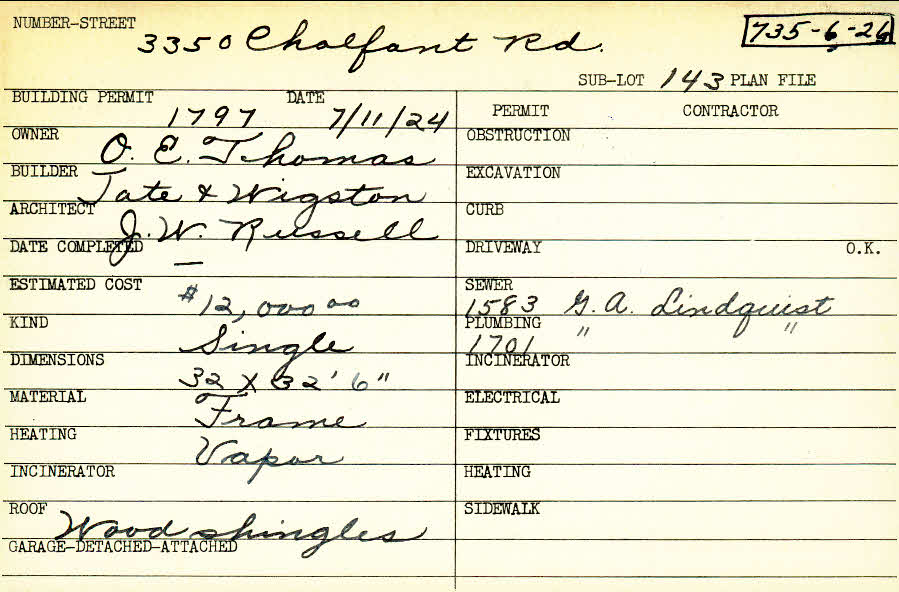 NUMBER-STREET 3350 Chalfant Rd. 735-6-26
SUB-LOT 143 PLAN FILE
BUILDING PERMIT 1797 DATE 7/11/24
PERMIT CONTRACTOR
OWNER O. E. Thomas
OBSTRUCTION
BUILDER Tate & Wigston
EXCAVATION
ARCHITECT J. W. Russell
CURB
DATE COMPLETED —
DRIVEWAY O.K.
ESTIMATED COST $12,000 00
SEWER 1583 G. A. Lindquist
KIND Single
PLUMBING 1701 " "
DIMENSIONS 32 X 32' 6"
INCINERATOR
MATERIAL Frame
ELECTRICAL
HEATING Vapor
FIXTURES
INCINERATOR
HEATING
ROOF Wood shingles
SIDEWALK
GARAGE-DETACHED-ATTACHED